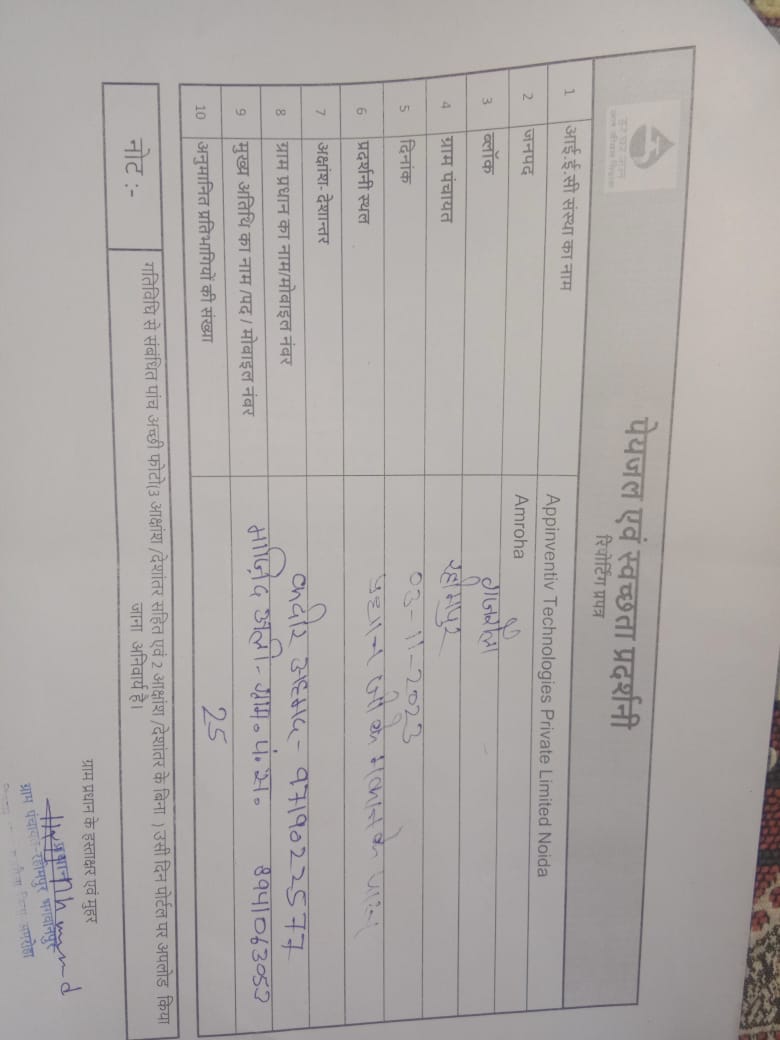 पेयजल एवं स्वच्छता प्रदर्शनी
रिपोर्टिंग प्रपत्र
1 आई.ई.सी संस्था का नाम Appinventiv Technologies Private Limited Noida
2 जनपद Amroha
3 ब्लॉक गजरौला
4 ग्राम पंचायत रहीमपुर
5 दिनांक 03-11-2023
6 प्रदर्शनी स्थल प्रधान जी के मकान के पास
7 अक्षांश देशान्तर
8 ग्राम प्रधान का नाम/मोबाइल नंबर कदीर अहमद - 9719022577
9 मुख्य अतिथि का नाम /पद / मोबाइल नंबर माजिद अली - ग्राम. पं. स. 8941063053
10 अनुमानित प्रतिभागियों की संख्या 25
नोट :- गतिविधि से संबंधित पांच अच्छी फोटो(3 आक्षांश /देशांतर सहित एवं 2 आक्षांश /देशांतर के बिना ) उसी दिन पोर्टल पर अपलोड किया
जाना अनिवार्य है।
ग्राम प्रधान के हस्ताक्षर एवं मुहर
प्रधान
ग्राम पंचायत-रहीमपुर